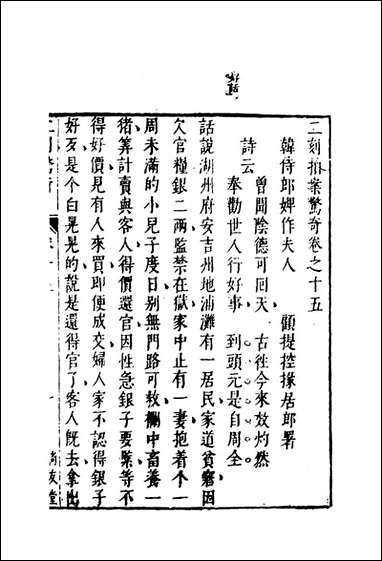 二刻拍案驚奇卷之十五
韓侍郎婢作夫人　顧提控掾居郎署
詩云
曾聞陰德可回天　古往今來效灼然
奉勸世人行好事　到頭元是自周全
話說湖州府安吉州地浦灘有一居民家道貧窘因
欠官糧銀二兩監禁在獄家中止有一妻抱着个一
周未滿的小兒子度日別無門路可救欄中畜養一
猪算計賣與客人得價還官因性急銀子要緊等不
得好價見有人來買即便成交婦人家不認得銀子
好歹是个白晃晃的說是還得官了客人既去拿出